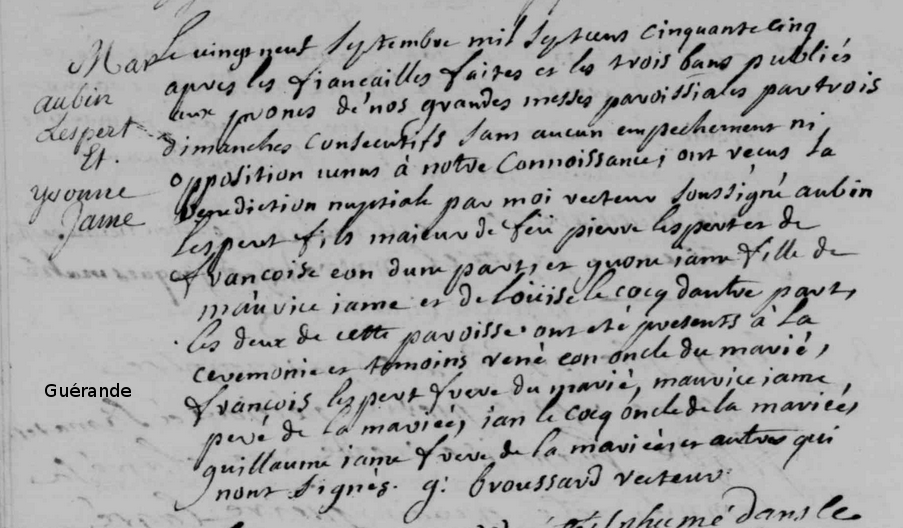 Mar
aubin
Lespert
Et.
yvonne
Jame
Le vingt neuf Septembre mil Sept cens cinquante cinq
apres les fiancailles faites et les trois bans publiés
aux prones de nos grandes messes paroissiales par trois
dimanches Consecutifs sans aucun empechement ni
opposition venus à notre Connoissance, ont recus la
benediction nuptiale par moi recteur soussigné aubin
Lespert fils majeur de feü pierre lespert et de
francoise eon dune part, et yvone jame fille de
maurice jame et de Loüise le cocq dautre part,
les deux de cette paroisse. ont eté presents à la
ceremonie et temoins rené eon oncle du marié,
françois lespert frere du marié, maurice jame
peré de la mariéé, jan le cocq óncle de la mariéé,
guillaume jame frere de la mariéé, et autres qui
nont signés. g: broussard recteur.
Guérande
dans le